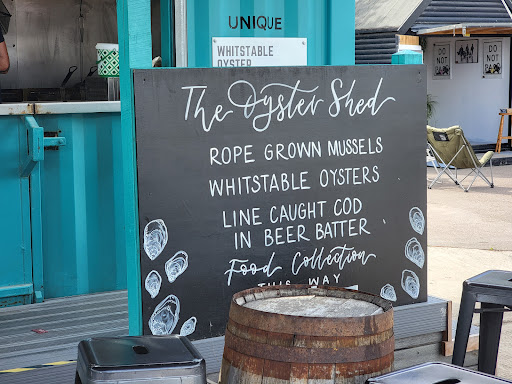 UNIQUE
WHITSTABLE
OYSTER
DO NOT
DO NOT
The Oyster Shed
ROPE GROWN MUSSELS
WHITSTABLE OYSTERS
LINE CAUGHT COD
IN BEER BATTER
Food Collection
THIS WAY